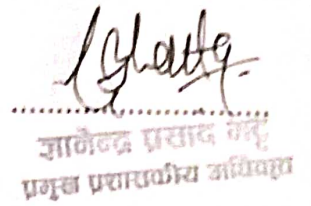 ज्ञानेन्द्र प्रसाद भट्ट
प्रमुख प्रशासकीय अधिकृत